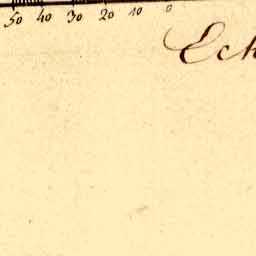 50 40 30 20 10 0
Ech